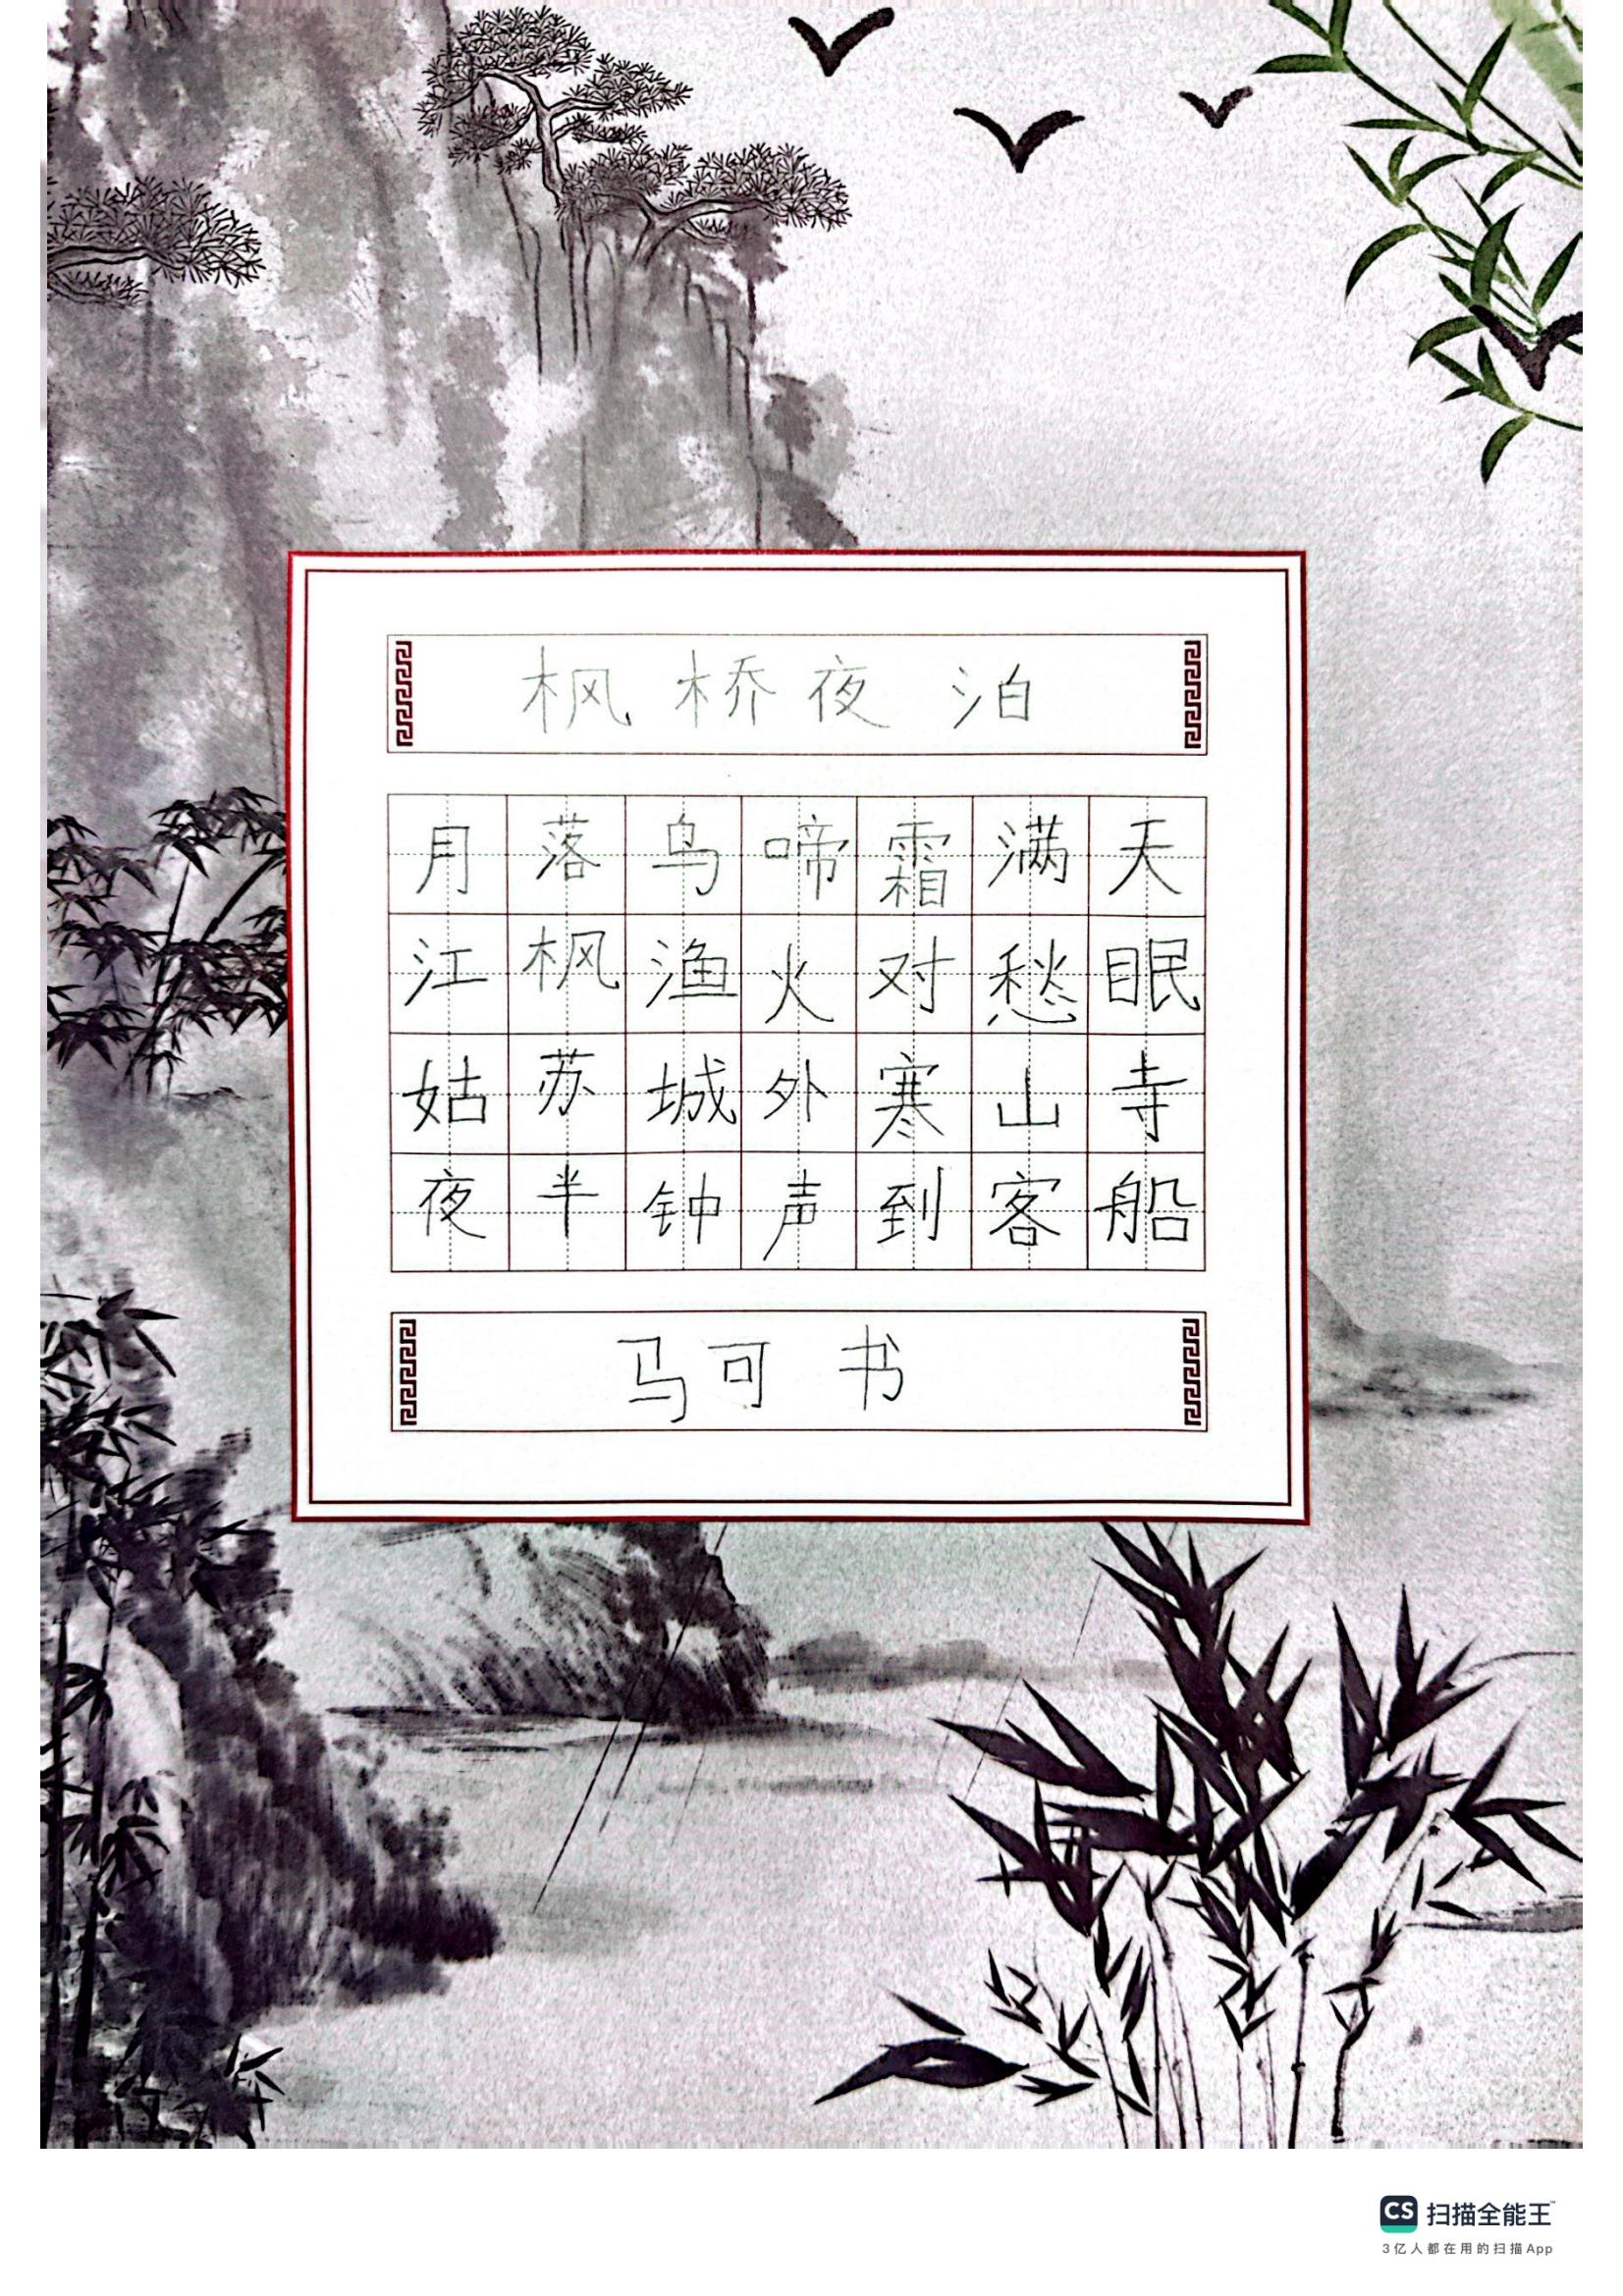 枫桥夜泊
月落乌啼霜满天
江枫渔火对愁眠
姑苏城外寒山寺
夜半钟声到客船
马可书
CS 扫描全能王™
3亿人都在用的扫描App